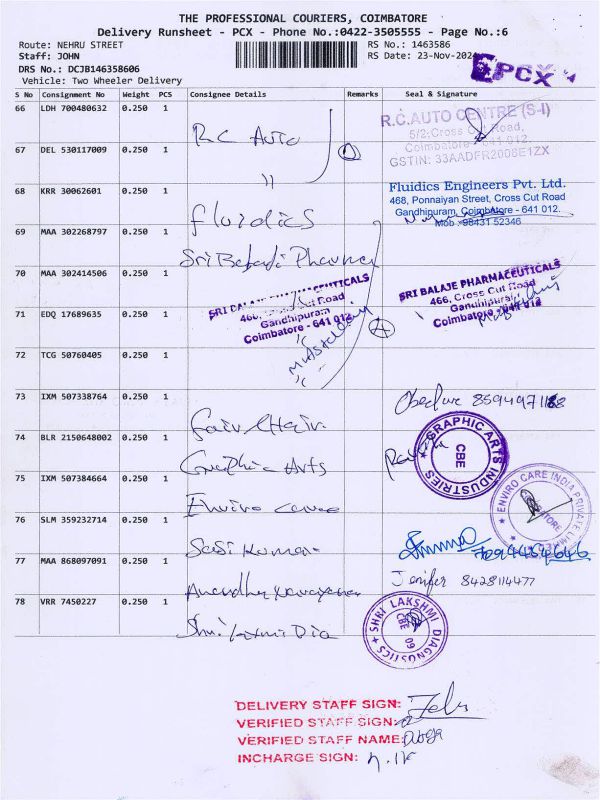 THE PROFESSIONAL COURIERS, COIMBATORE
Delivery Runsheet - PCX - Phone No.:0422-3505555 - Page No.:6
Route: NEHRU STREET
RS No.: 1463586
Staff: JOHN
RS Date: 23-Nov-2024
DRS No.: DCJB146358606
Vehicle: Two Wheeler Delivery
EPCX
S No Consignment No Weight PCS Consignee Details Remarks Seal & Signature
66 LDH 700480632 0.250 1
R.C Auto
R.C.AUTO CENTRE (S-I)
5/2, Cross Cut Road,
Coimbatore - 641 012.
GSTIN: 33AADFR2006E1ZX
67 DEL 530117009 0.250 1
"
68 KRR 30062601 0.250 1
fluidics
Fluidics Engineers Pvt. Ltd.
468, Ponnaiyan Street, Cross Cut Road
Gandhipuram, Coimbatore - 641 012.
Mob : 98431 52346
69 MAA 302268797 0.250 1
Sri Balaji Pharma
70 MAA 302414506 0.250 1
SRI BALAJE PHARMACEUTICALS
466, Cross Cut Road
Gandhipuram
Coimbatore - 641 012
SRI BALAJE PHARMACEUTICALS
466, Cross Cut Road
Gandhipuram
Coimbatore - 641 012
71 EDQ 17689635 0.250 1
72 TCG 50760405 0.250 1
73 IXM 507338764 0.250 1
Fair Hair
74 BLR 2150648002 0.250 1
Graphic Arts
GRAPHIC ARTS INDUSTRIES
CBE
75 IXM 507384664 0.250 1
Enviro care
ENVIRO CARE INDIA PRIVATE LIMITED
STORE
76 SLM 359232714 0.250 1
Sasi Kumar
77 MAA 868097091 0.250 1
Jenifer 8428114477
78 VRR 7450227 0.250 1
Shri Laxmi Dia
SHRI LAKSHMI DIAGNOSTICS
CBE 09
DELIVERY STAFF SIGN:
VERIFIED STAFF SIGN:
VERIFIED STAFF NAME:
INCHARGE SIGN: